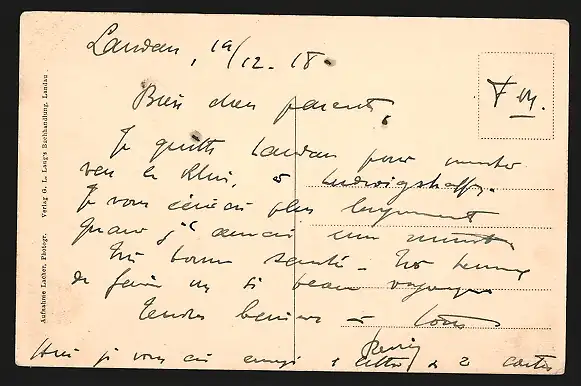 Landau, 19/12.18.
F. M.
Bien chers parents,
Je quitte Landau pour monter
vers le Rhin, à Ludwigshaffen.
Je vous écrirai plus longuement
quand j'aurai une minute
Très bonne santé - Très heureux
de faire un si beau voyage
Tendres baisers à tous
René
Hier je vous ai envoyé 1 lettre & 2 cartes
Aufnahme Lacher, Photogr. Verlag G. L. Lang's Buchhandlung, Landau.